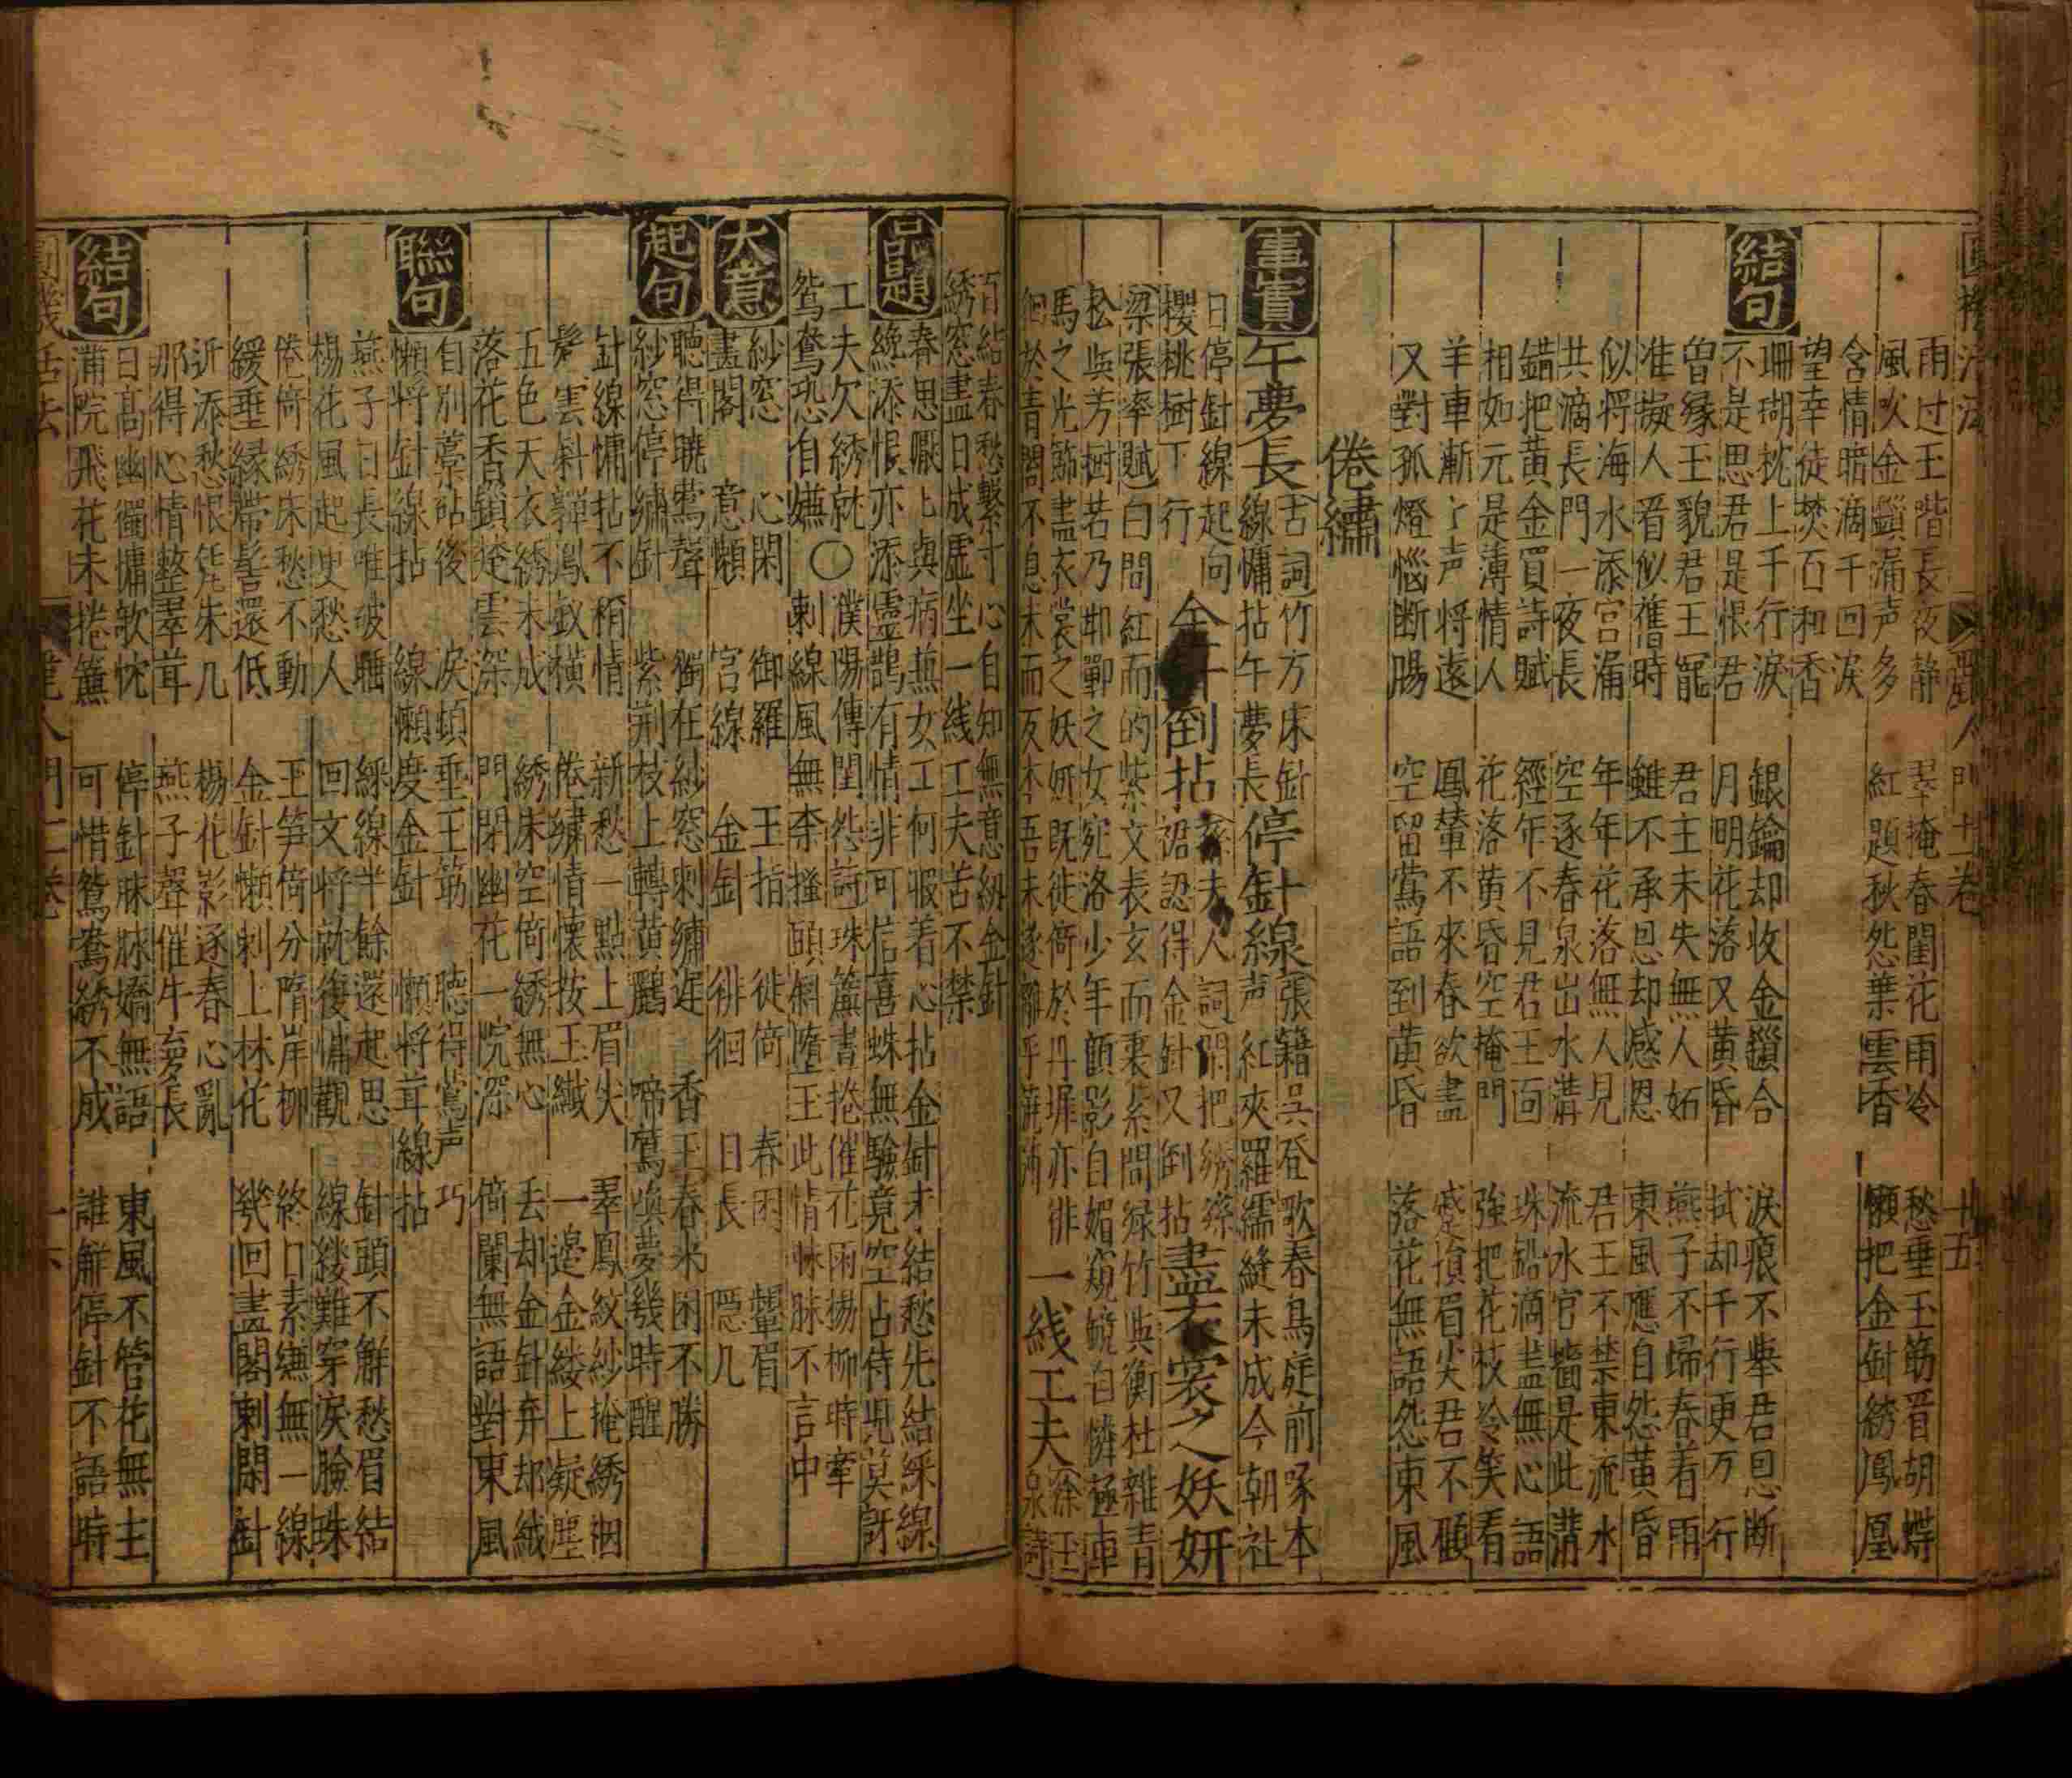 雨过玉階長夜静　翠掩春閨花雨冷　愁垂玉筯晋胡蝶
風吹金鎖漏声多　紅題秋怨葉雲香　懶把金針綉鳳凰
含情暗滴千回淚
望幸徒焚百和香
結句
珊瑚枕上千行淚　銀鑰却收金鎖合　淚痕不學君恩断
不是思君是恨君　月明花落又黄昏　拭却千行更万行
曽縁玉貌君王寵　君主未失無人妬　燕子不歸春着雨
准凝人看似舊時　雖不承恩却感恩　東風應自怨黄昏
似将海水添宮漏　年年花落無人見　君王不禁東流水
共滴長門一夜長　空逐春泉出水溝　流水宮墻是此溝
錯把黄金買詩賦　經年不見君王面　珠鉛滴盡無心語
相如元是薄情人　花落黄昏空掩門　強把花枝冷笑看
羊車漸了声将遠　鳳輦不來春欲盡　蹙損眉尖君不顧
又對孤燈惱断腸　空留鶯語到黄昏　落花無語怨東風
倦繡
事實
午夢長　古詞竹方床針線慵拈午夢長　停針線　張籍吳登歌春鳥庭前啄本声紅夾羅繻縫未成今朝社
日停針線起向櫻桃樹下行　金針倒拈　夫人詞閑把綉認得金針又倒拈　畫衣裳之妖妍
梁張率賦白間紅而的紫文表玄而裏素間緑竹與衡杜雜青
松與芳樹若乃邯鄲之女宛洛少年顧影自媚窺鏡自憐極車
馬之光飾盡衣裳之妖妍既徙倚於丹墀亦徘
徊於青閣不息未而反本吾未　一线工夫
百結春愁繫寸心自知無意紉金針
綉窓盡日成虚坐一线工夫苦不禁
品題
春思厭上與病蕉女工何暇着心拈金針才結愁先結綵線
纔添恨亦添靈鵲有情非可信喜蛛無驗竟空占侍児莫訝
工夫欠綉就○濮陽傳閨怨詩珠簾書捲催花雨楊柳時牽
鴛鴦恐自嫌　刺線風無奈搔頭斜墮玉此情脉脉不言中
大意
紗窓　心閑　御羅　玉指　徙倚　春困　顰眉
畫閣　意懶　宮線　金針　徘徊　日長　隠几
起句
聴得曉鶯聲　獨在紗窓刺繡遲　香玉春來困不勝
紗窓停繡針　紫荆枝上轉黄鸝　啼鶯喚夢幾時醒
針線慵拈不稍情　新愁一點上眉尖　翠鳳紋紗掩綉裀
鬢雲斜嚲鳳釵横　倦繡情懷按玉纎　一邉金縷上凝塵
五色天衣綉未成　綉床空倚綉無心　丢却金針弃却絨
落花香鎖遶雲深　門閉幽花一院深　倚闌無語對東風
聯句
自別藁砧後　淚頓垂玉筯　聴得鶯声巧
懶将針線拈　線懶度金針　懶将茸線拈
燕子日長唯破睡　綵線半餘還起思　針頭不觧愁眉結
楊花風起更愁人　回文将就復慵觀　線縷難穿淚臉珠
倦倚綉床愁不動　玉笋倚分隋岸柳　終日素縑無一線
緩垂緑帶髻還低　金針懶刺上林花　幾回畫閣刺閑針
近添愁恨凭朱几　楊花影逐春心亂
那得心情整翠茸　燕子聲催午夢長
結句
日髙幽獨慵欹枕　停針脉脉嬌無語　東風不管花無主
滿院飛花未捲簾　可惜鴛鴦綉不成　誰觧停針不語時